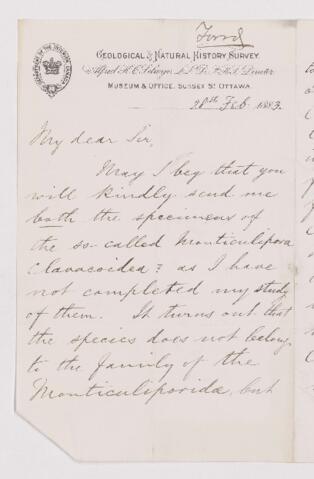 Foord
GEOLOGICAL & NATURAL HISTORY SURVEY.
Alfred R. C. Selwyn, L.L.D. F.R.S. Director
MUSEUM & OFFICE, SUSSEX ST OTTAWA.
28th Feb 1883.
My dear Sir,
May I beg that you
will kindly send me
both the specimens of
the so-called Monticulipora
clavacoidea? as I have
not completed my study
of them. It turns out that
the species does not belong
to the family of the
Monticuliporidæ, but